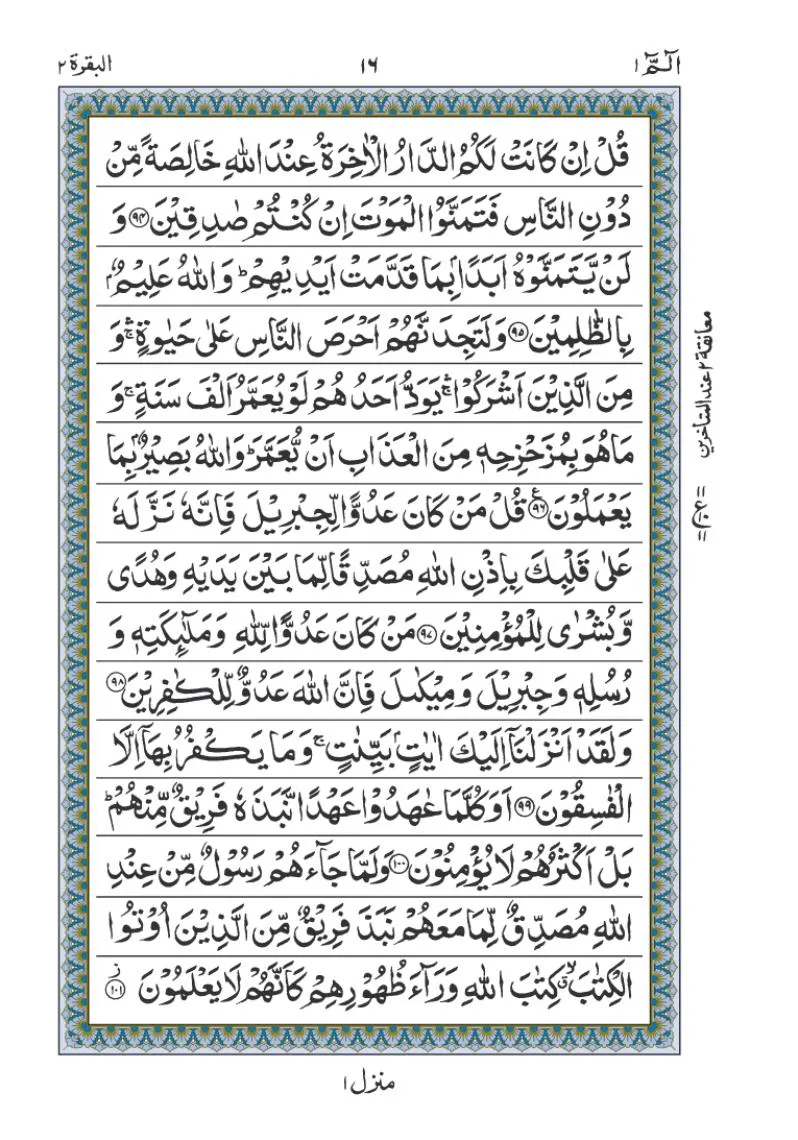 الٓمّٓ ١
١٦
البقرة ٢
قُلْ اِنْ كَانَتْ لَكُمُ الدَّارُ الْاٰخِرَةُ عِنْدَ اللّٰهِ خَالِصَةً مِّنْ
دُوْنِ النَّاسِ فَتَمَنَّوُا الْمَوْتَ اِنْ كُنْتُمْ صٰدِقِيْنَ ﴿٩٤﴾ وَ
لَنْ يَّتَمَنَّوْهُ اَبَدًۢا بِمَا قَدَّمَتْ اَيْدِيْهِمْ ؕ وَاللّٰهُ عَلِيْمٌۢ
بِالظّٰلِمِيْنَ ﴿٩٥﴾ وَلَتَجِدَنَّهُمْ اَحْرَصَ النَّاسِ عَلٰى حَيٰوةٍ ۛۚ وَ
مِنَ الَّذِيْنَ اَشْرَكُوْا ۛۚ يَوَدُّ اَحَدُهُمْ لَوْ يُعَمَّرُ اَلْفَ سَنَةٍ ۚ وَ
مَا هُوَ بِمُزَحْزِحِهٖ مِنَ الْعَذَابِ اَنْ يُّعَمَّرَ ؕ وَاللّٰهُ بَصِيْرٌۢ بِمَا
يَعْمَلُوْنَ ﴿٩٦﴾ ع قُلْ مَنْ كَانَ عَدُوًّا لِّجِبْرِيْلَ فَاِنَّهٗ نَزَّلَهٗ
عَلٰى قَلْبِكَ بِاِذْنِ اللّٰهِ مُصَدِّقًا لِّمَا بَيْنَ يَدَيْهِ وَهُدًى
وَّبُشْرٰى لِلْمُؤْمِنِيْنَ ﴿٩٧﴾ مَنْ كَانَ عَدُوًّا لِّلّٰهِ وَمَلٰٓئِكَتِهٖ وَ
رُسُلِهٖ وَجِبْرِيْلَ وَمِيْكٰىلَ فَاِنَّ اللّٰهَ عَدُوٌّ لِّلْكٰفِرِيْنَ ﴿٩٨﴾
وَلَقَدْ اَنْزَلْنَاۤ اِلَيْكَ اٰيٰتٍۢ بَيِّنٰتٍ ۚ وَمَا يَكْفُرُ بِهَاۤ اِلَّا
الْفٰسِقُوْنَ ﴿٩٩﴾ اَوَكُلَّمَا عٰهَدُوْا عَهْدًا نَّبَذَهٗ فَرِيْقٌ مِّنْهُمْ ؕ
بَلْ اَكْثَرُهُمْ لَا يُؤْمِنُوْنَ ﴿١٠٠﴾ وَلَمَّا جَآءَهُمْ رَسُوْلٌ مِّنْ عِنْدِ
اللّٰهِ مُصَدِّقٌ لِّمَا مَعَهُمْ نَبَذَ فَرِيْقٌ مِّنَ الَّذِيْنَ اُوْتُوا
الْكِتٰبَ ۙۗ كِتٰبَ اللّٰهِ وَرَآءَ ظُهُوْرِهِمْ كَاَنَّهُمْ لَا يَعْلَمُوْنَ ﴿١٠١﴾ ز
معانقة ٢ عند المتاخرين
منزل ١